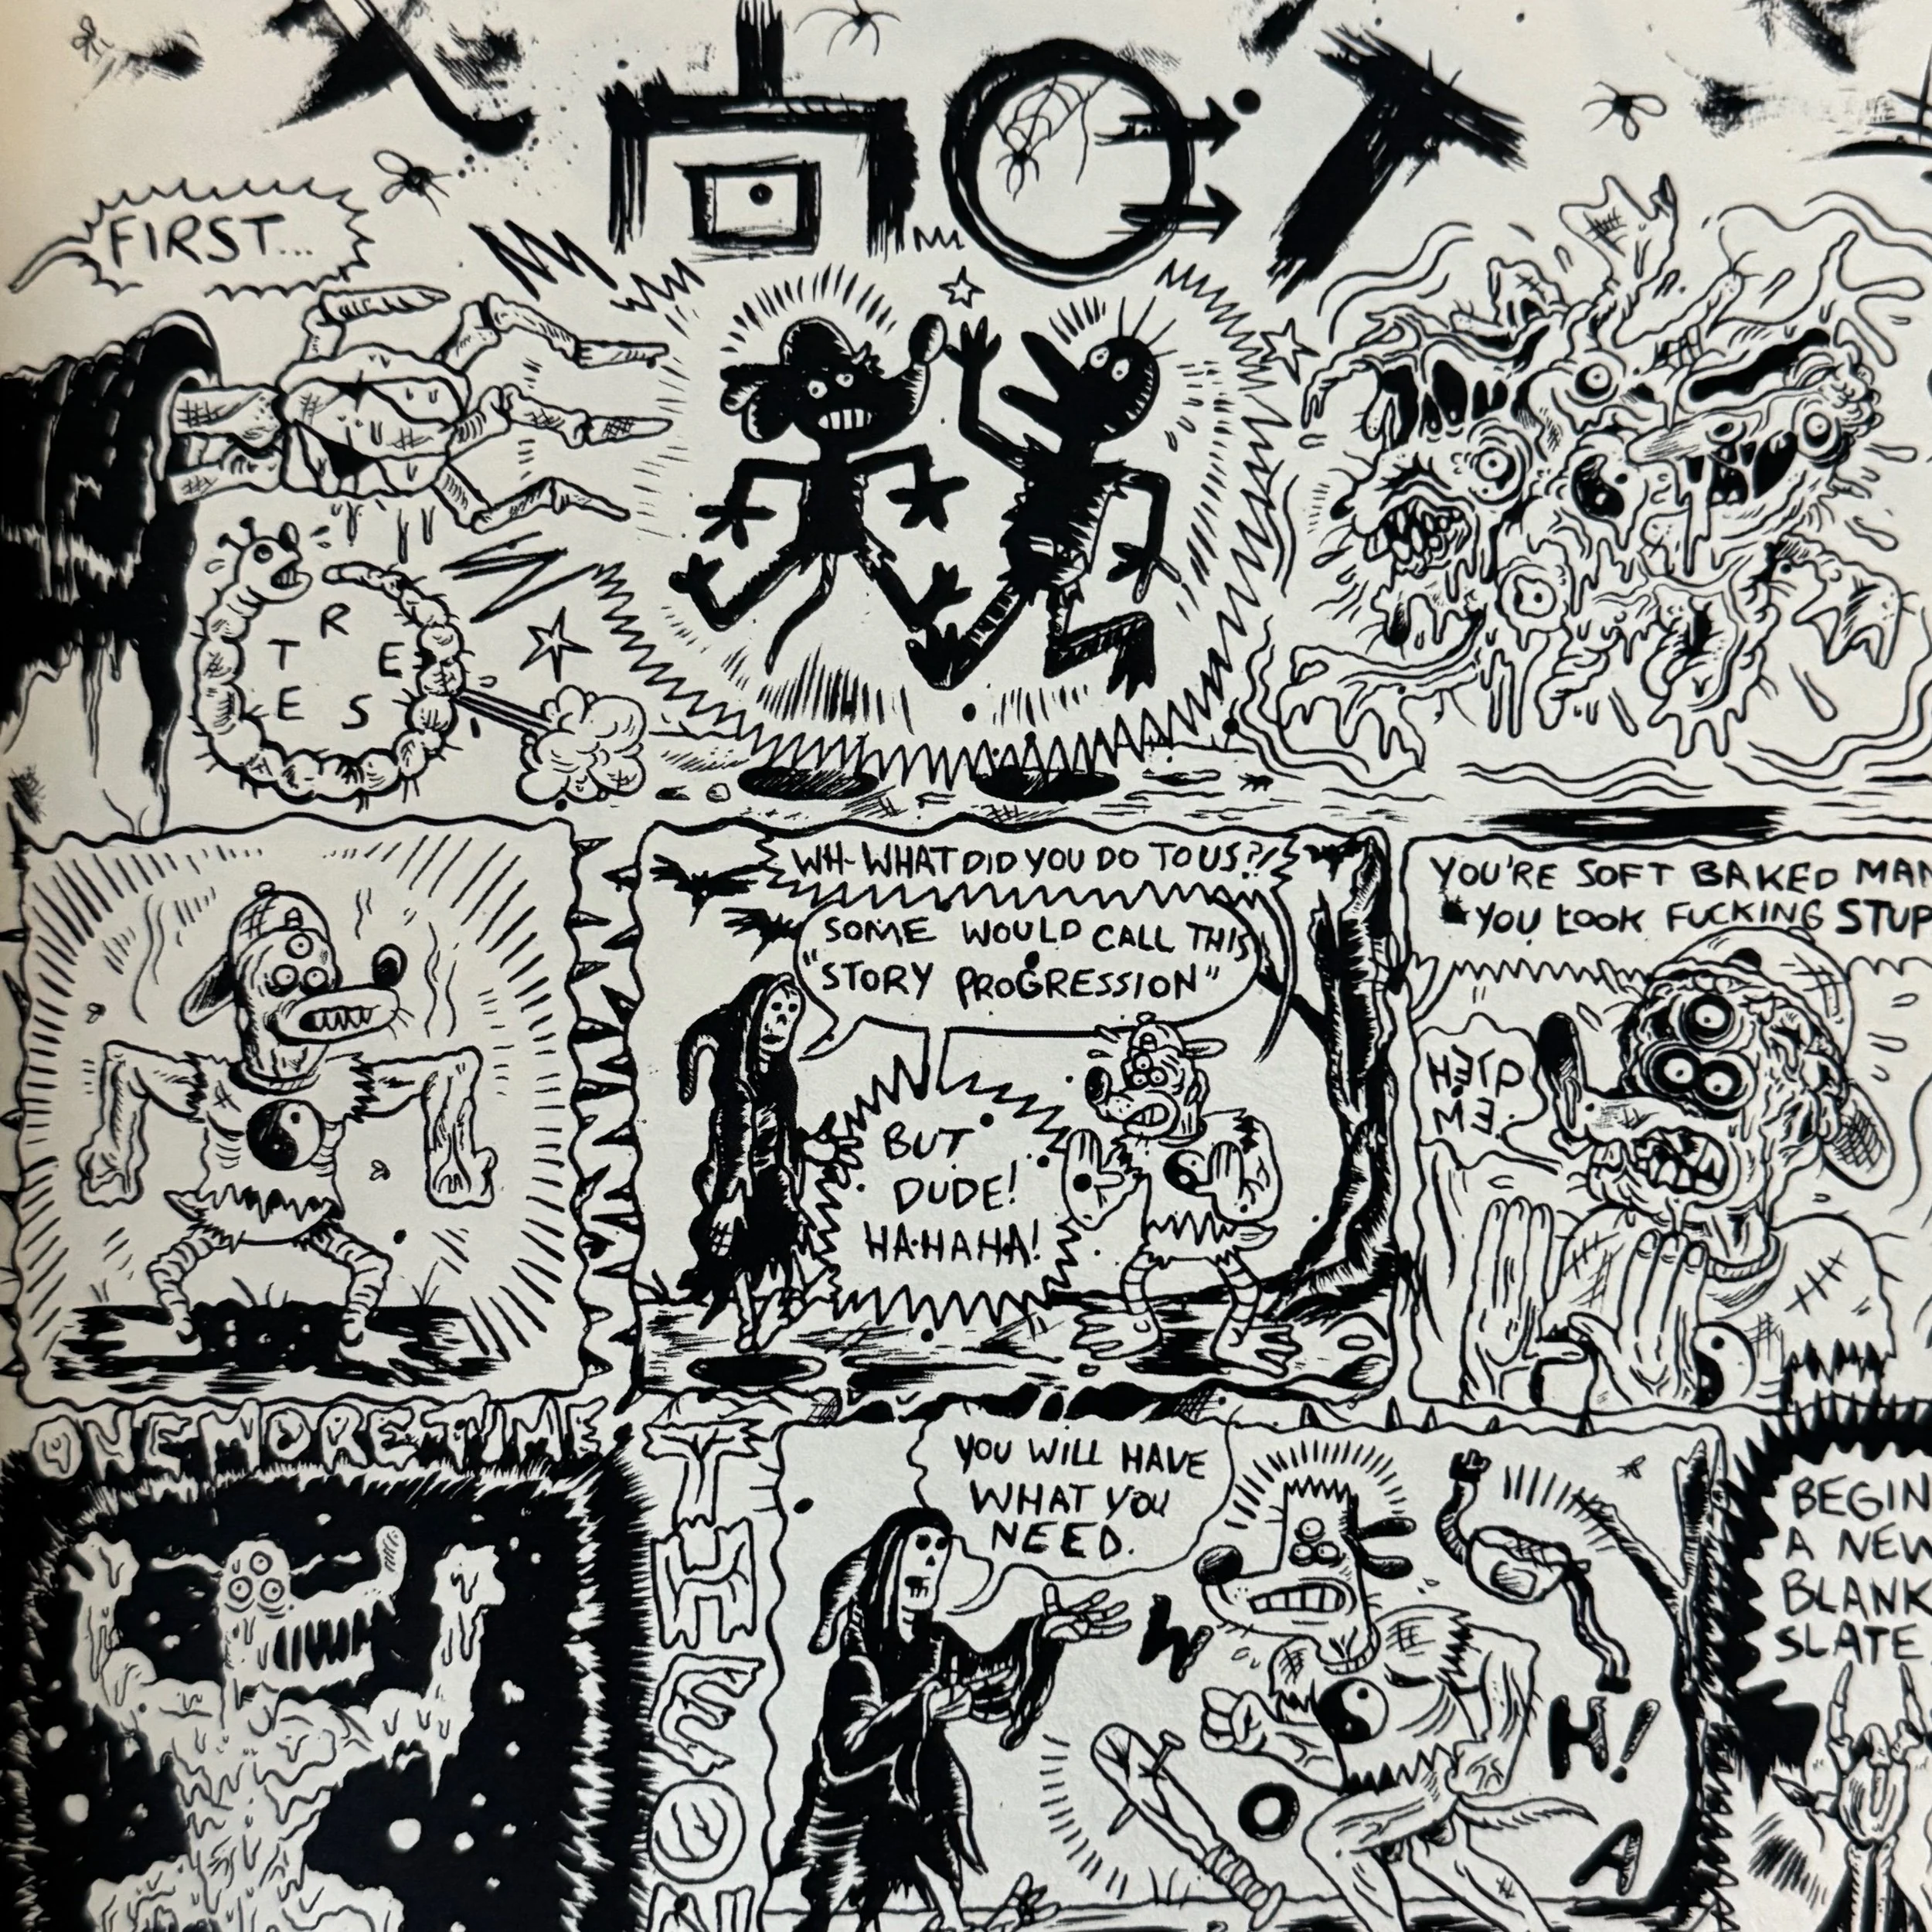 FIRST...
T R E E S
WH-WHAT DID YOU DO TO US?!
SOME WOULD CALL THIS
"STORY PROGRESSION"
BUT
DUDE!
HA-HAHA!
YOU'RE SOFT BAKED MAN
YOU LOOK FUCKING
HELP
ME.
ONE MORE TIME
YOU WILL HAVE
WHAT YOU
NEED.
WOAH!
BEGIN
A NEW
BLANK
SLATE